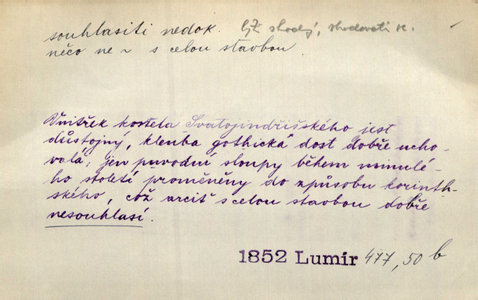 souhlasiti nedok. být shodný, shodovati se.
něco ne ~ s celou stavbou
Vnitřek kostela Svatojindřišského jest
důstojný, klenba gothická dost dobře ucho-
valá; jen puvodné sloupy během minulé-
ho století proměněny do způsobu korinth-
ského, což arciť s celou stavbou dobře
nesouhlasí.
1852 Lumír 477, 50 b